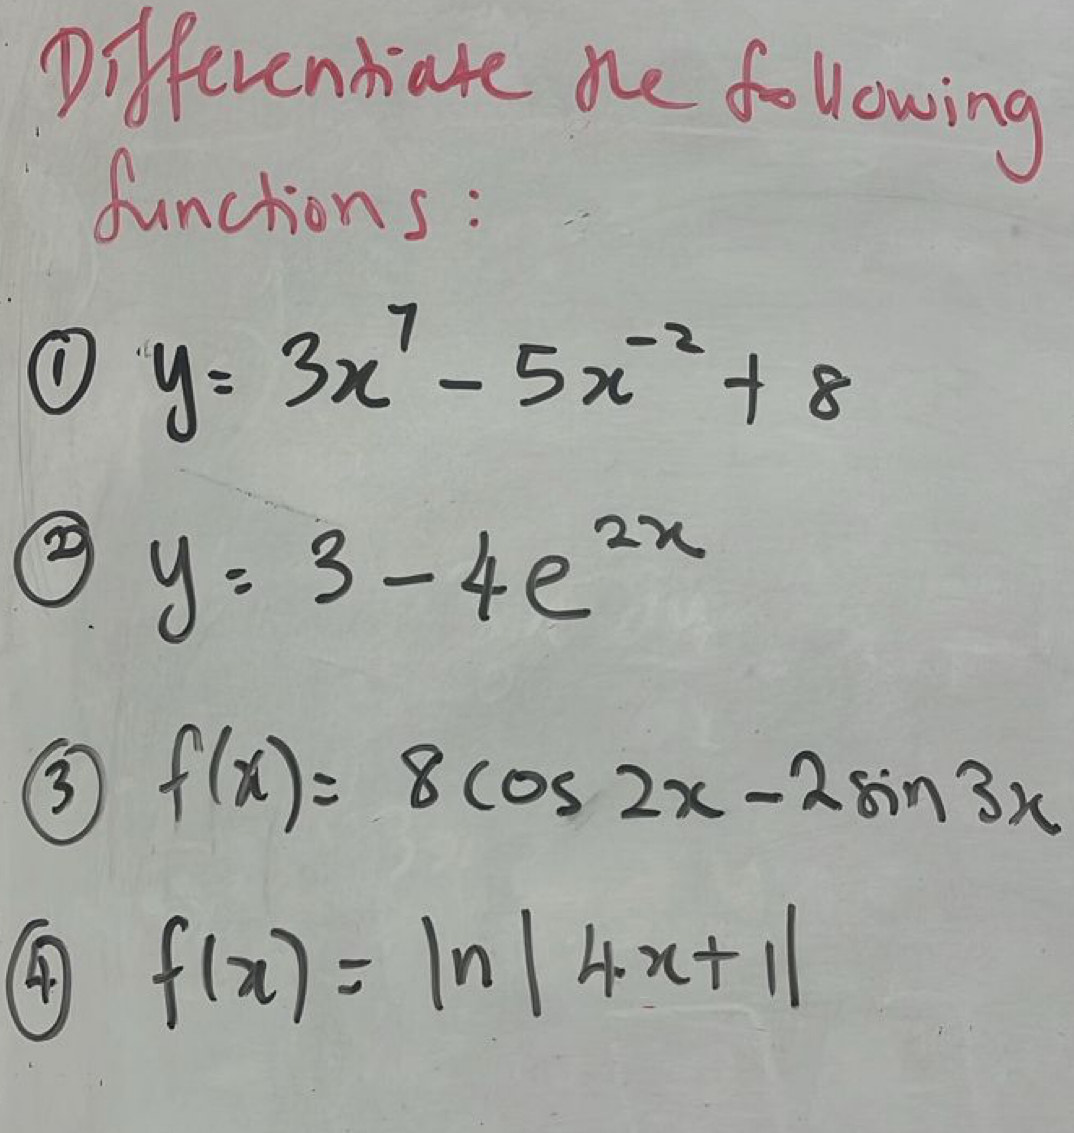 Differentiate the following
functions:
① y = 3x⁷ - 5x⁻² + 8
② y = 3 - 4e²ˣ
③ f(x) = 8 cos 2x - 2 sin 3x
④ f(x) = ln | 4x + 1 |